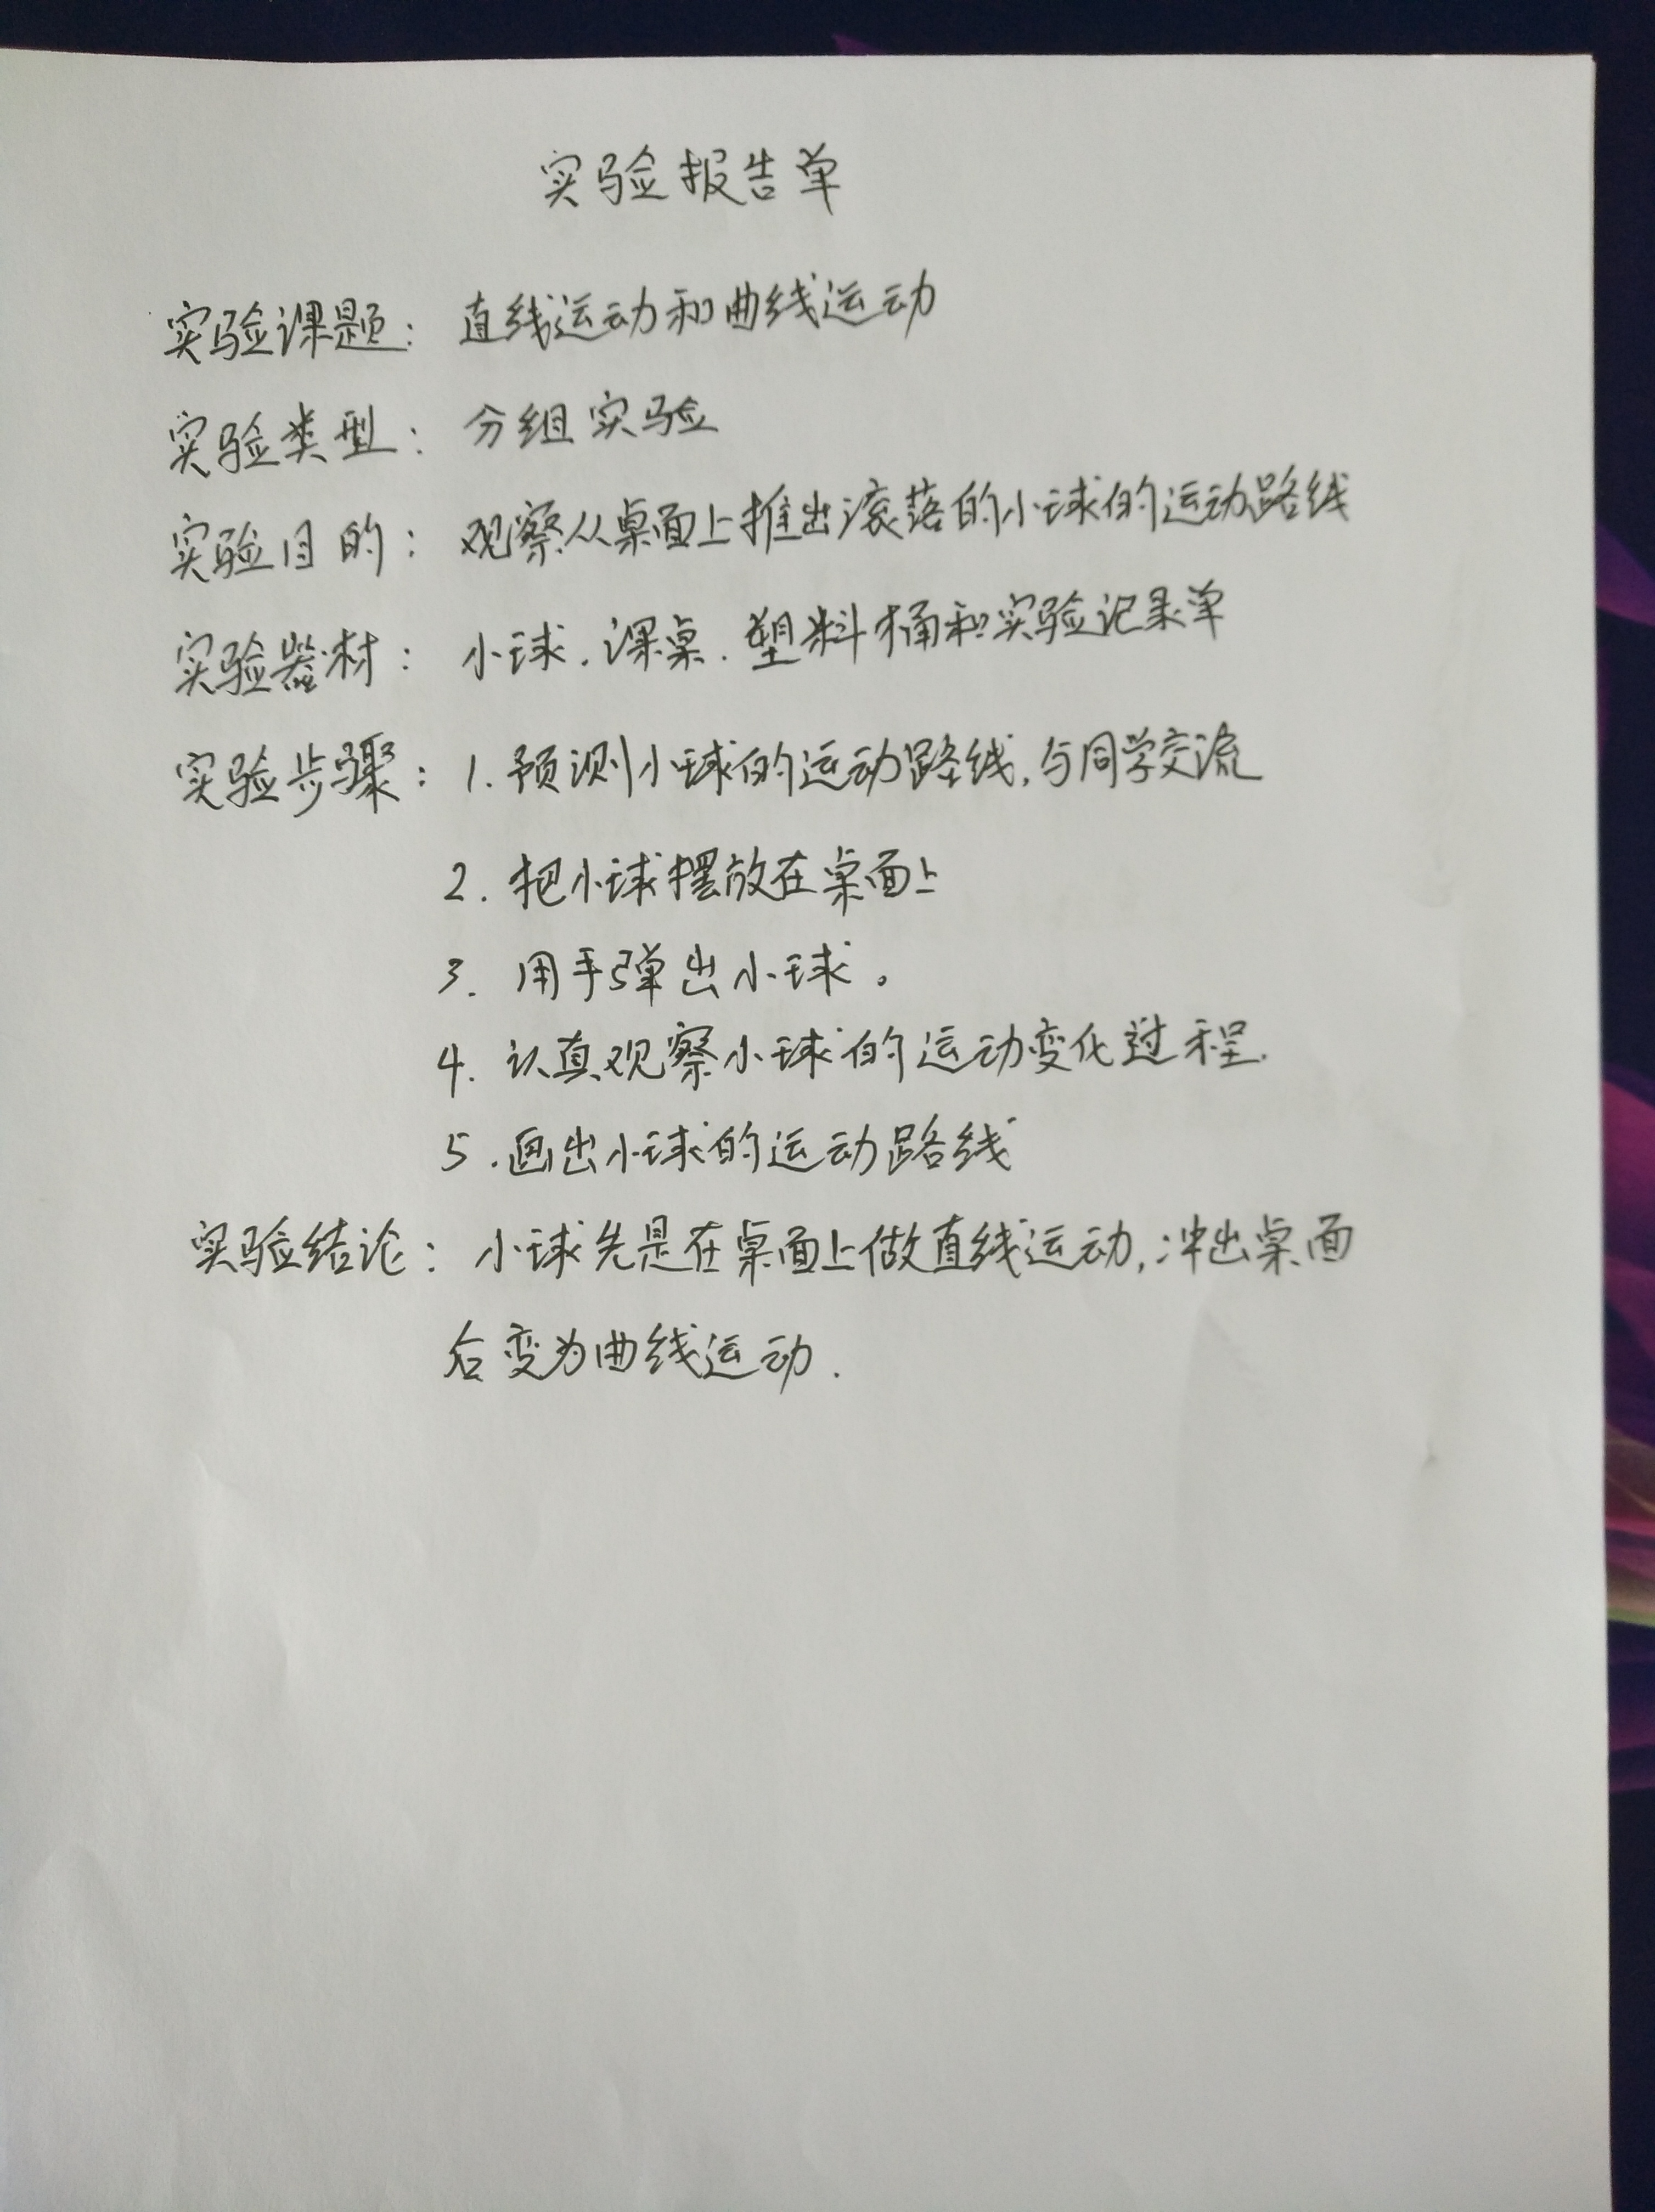 实验报告单
实验课题：直线运动和曲线运动
实验类型：分组实验
实验目的：观察从桌面上推出滚落的小球的运动路线
实验器材：小球.课桌.塑料桶和实验记录单
实验步骤：1.预测小球的运动路线,与同学交流
2.把小球摆放在桌面上
3.用手弹出小球。
4.认真观察小球的运动变化过程.
5.画出小球的运动路线
实验结论：小球先是在桌面上做直线运动,冲出桌面
后变为曲线运动.